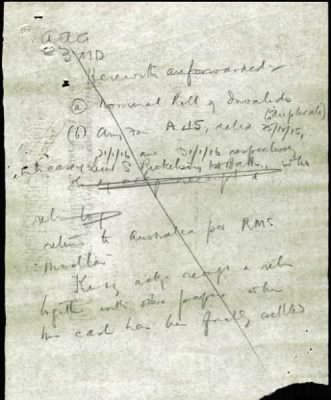 AAG
3 MD
Herewith are forwarded:-
(a) Nominal Roll of Invalids
(duplicate)
(b) Army Fm A 45, dated 25/10/15,
21/1/16 and 31/1/16 respectively
in case S
Kindly receipt & who
return
return to Australia per RMS
"Moultan"
Kindly ackge receipt & return
together with other papers when
his case has been finally settled